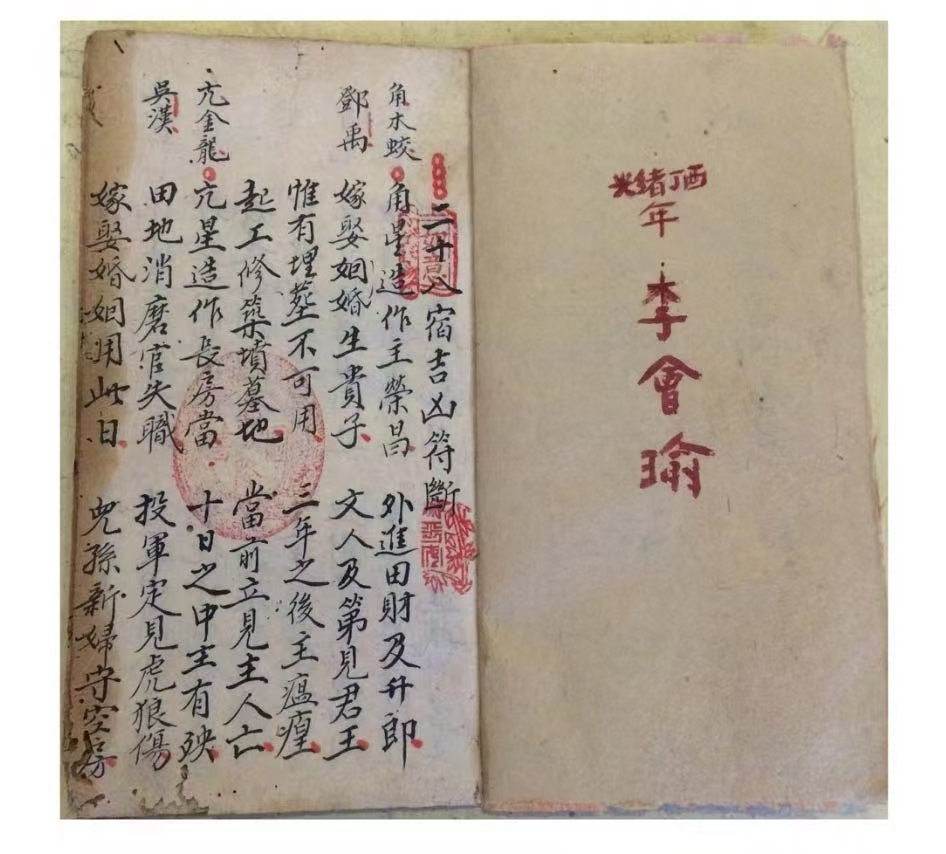 光緒丁酉
年
李會瑜
二十八宿吉凶符斷
角木蛟 角星造作主榮昌 外進田財及升郎
鄧禹 嫁娶姻婚生貴子 文人及第見君王
惟有埋葬不可用 三年之後主瘟㾮
起工修築墳墓地 當前立見主人亡
亢金龍 亢星造作長房當 十日之中主有殃
吳漢 田地消磨官失職 投軍定見虎狼傷
嫁娶婚姻用此日 兒孫新婦守空房